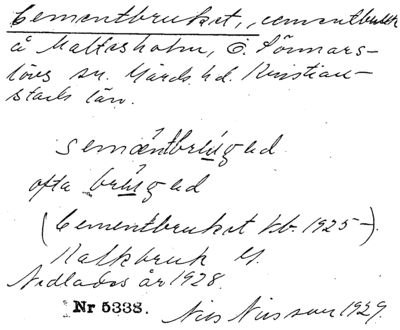 Cementbruket, cementbruk
å Maltesholm, Ö. Sönnars-
lövs sn. Gärds hd. Kristian-
stads län.
seméntbrúgəd
ofta brúgəd
(Cementbruket kb. 1925–).
Kalkbruk
Nedlades år 1928.
Nr 5338. Nils Nilsson 1929.